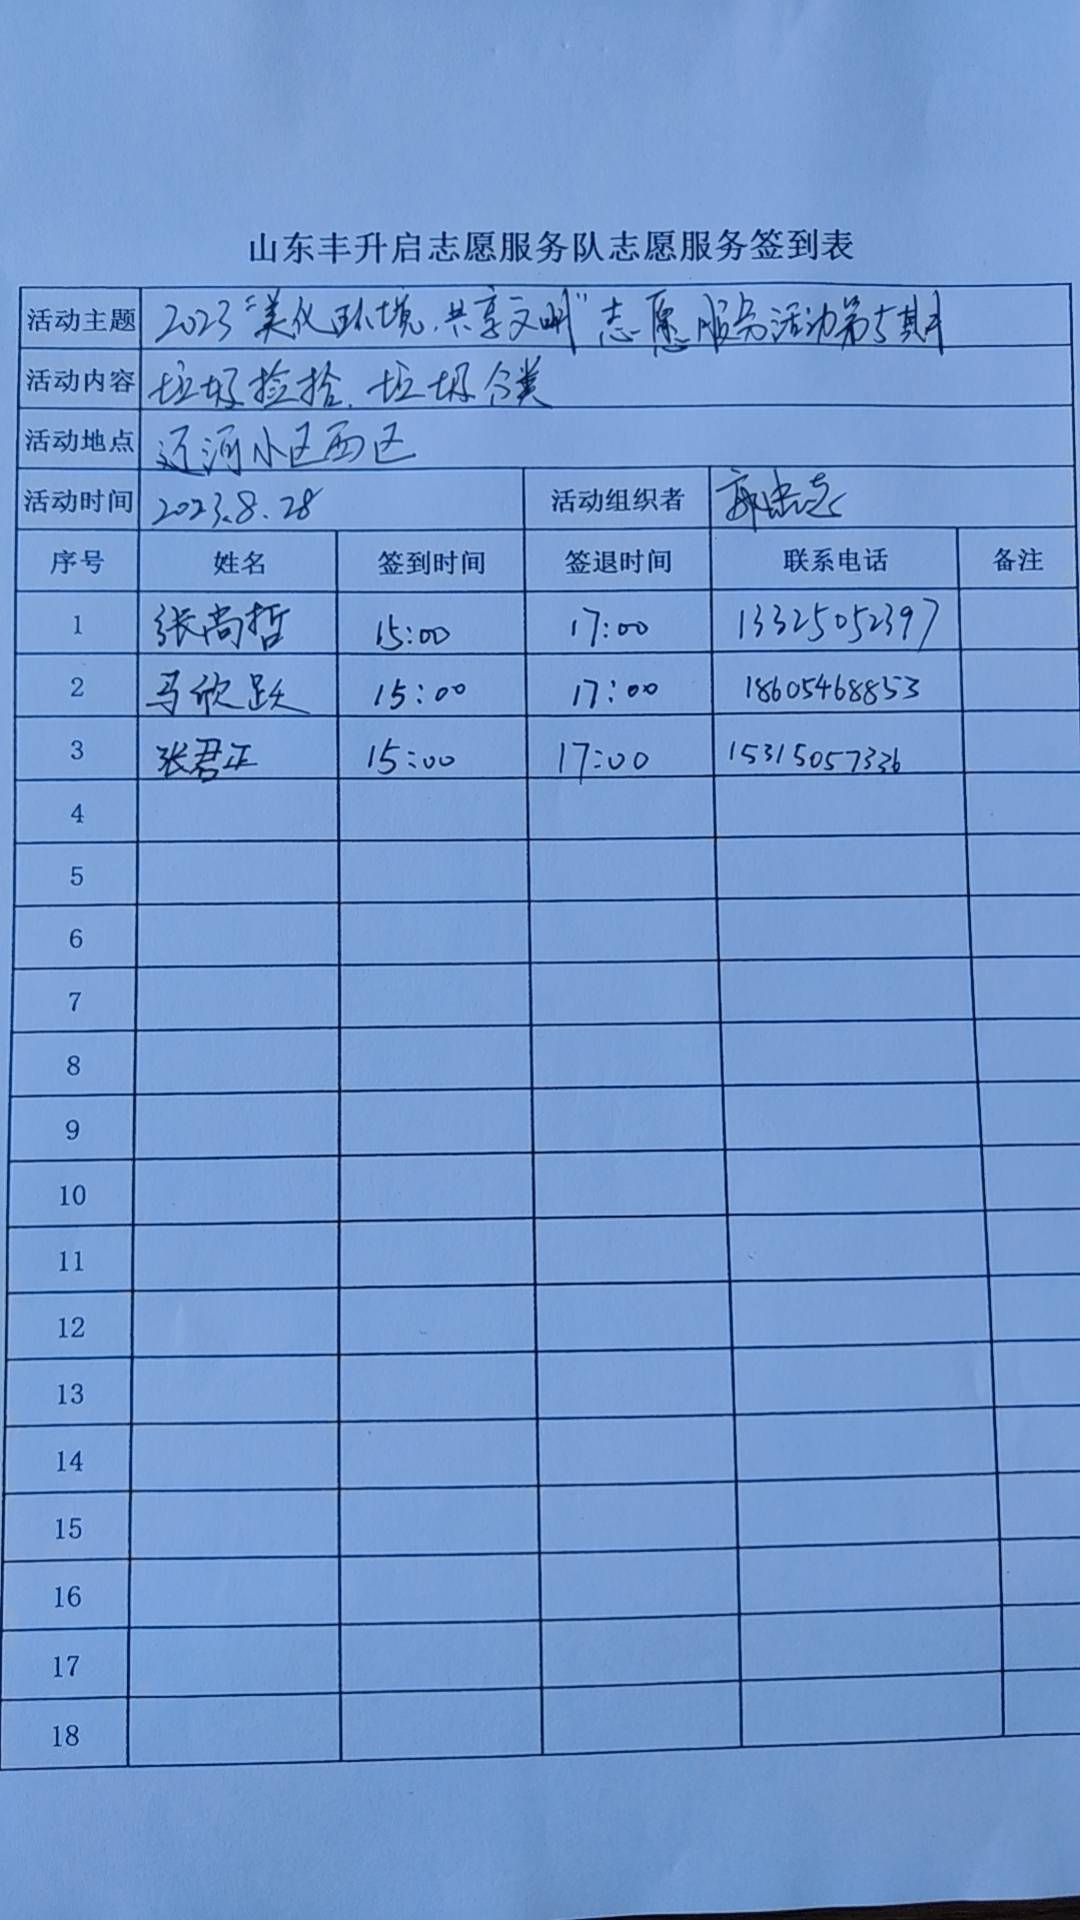 山东丰升启志愿服务队志愿服务签到表
活动主题 2023“美化环境.共享文明”志愿服务活动第5期
活动内容 垃圾捡拾、垃圾分类
活动地点 辽河小区西区
活动时间 2023.8.28 活动组织者 郭忠志
序号 姓名 签到时间 签退时间 联系电话 备注
1 张尚哲 15:00 17:00 13325052397
2 马欣跃 15:00 17:00 18605468853
3 张君正 15:00 17:00 15315057336
4
5
6
7
8
9
10
11
12
13
14
15
16
17
18